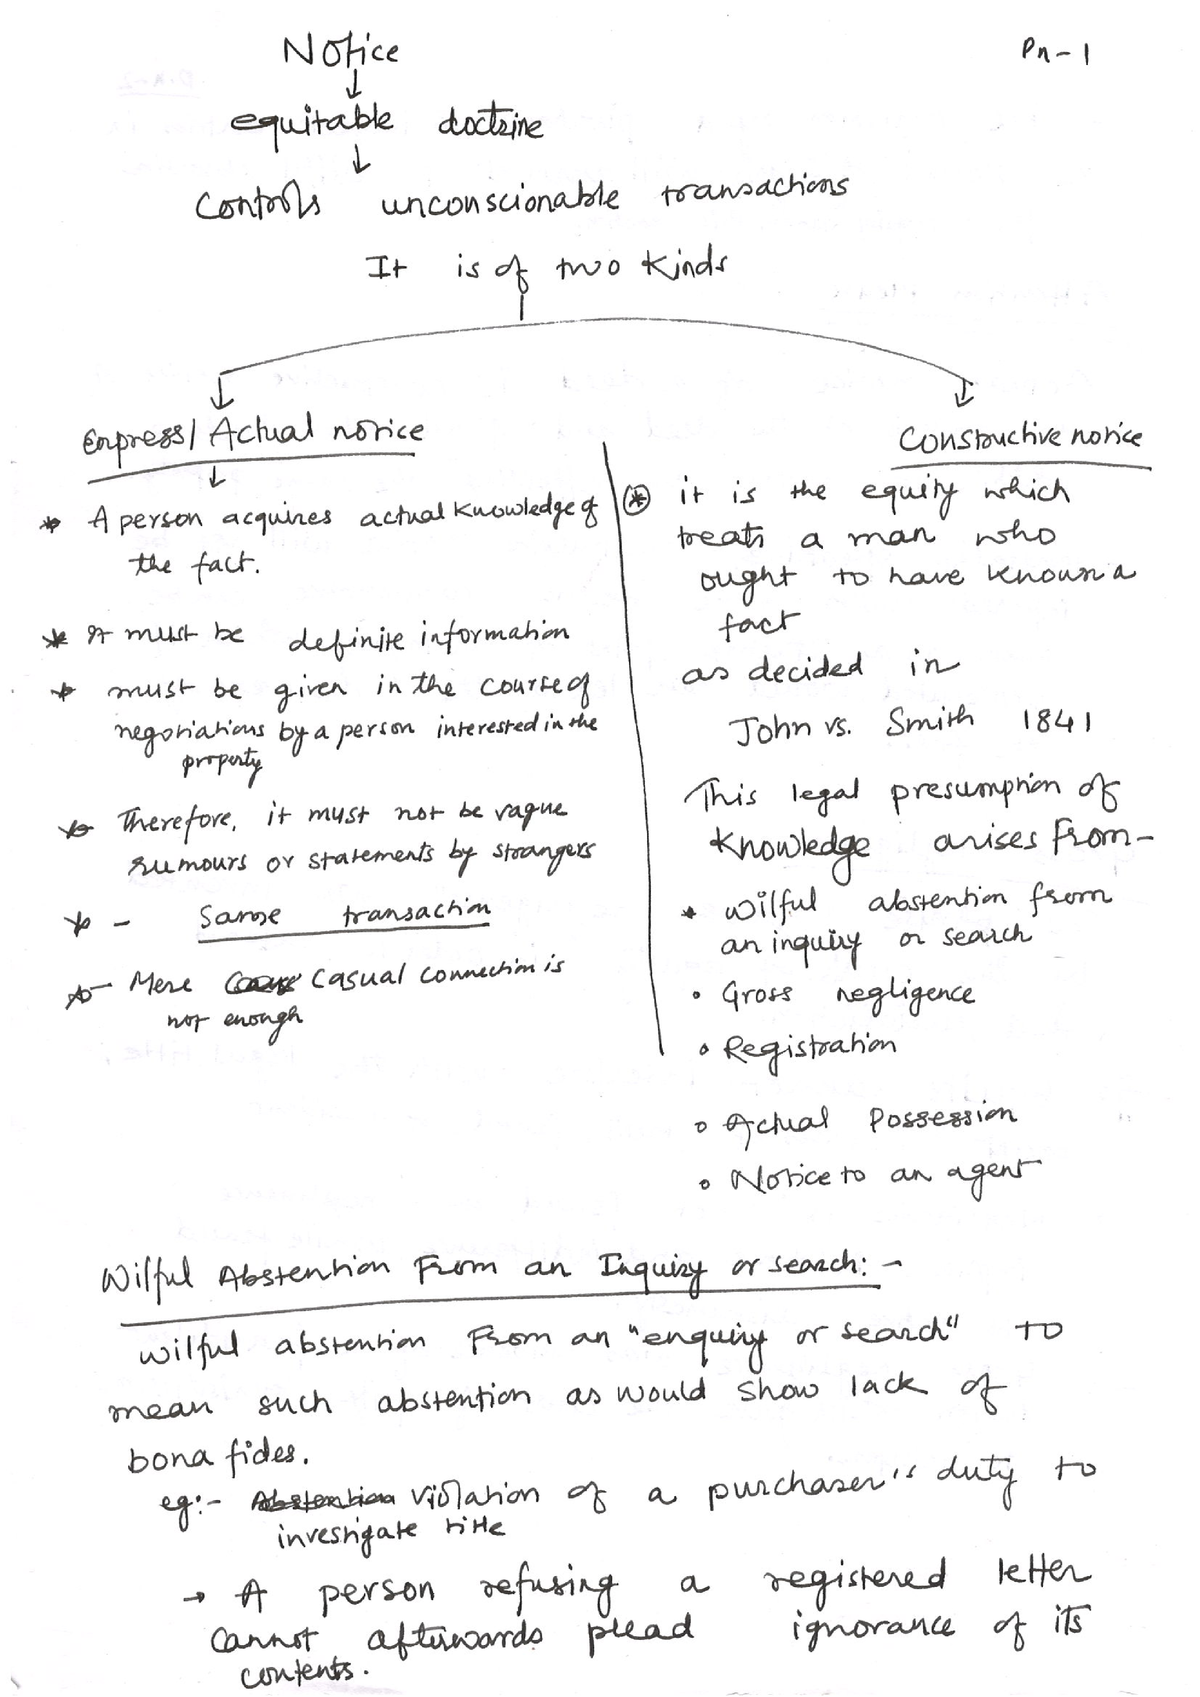 Pn-1
Notice
equitable doctrine
Controls unconscionable transactions
It is of two kinds
Express/Actual notice
* A person acquires actual knowledge of
the fact.
* It must be definite information
* must be given in the course of
negotiations by a person interested in the
property
* Therefore, it must not be vague
rumours or statements by strangers
* - Same transaction
* - Mere casual connection is
not enough
Constructive notice
* it is the equity which
treats a man who
ought to have known a
fact
as decided in
John vs. Smith 1841
This legal presumption of
knowledge arises from-
* wilful abstention from
an inquiry or search
• Gross negligence
• Registration
• Actual Possession
• Notice to an agent
Wilful Abstention From an Inquiry or search:-
wilful abstention From an "enquiry or search" to
mean such abstention as would show lack of
bona fides.
eg:- Abstention violation of a purchaser's duty to
investigate title
→ A person refusing a registered letter
cannot afterwards plead ignorance of its
contents.